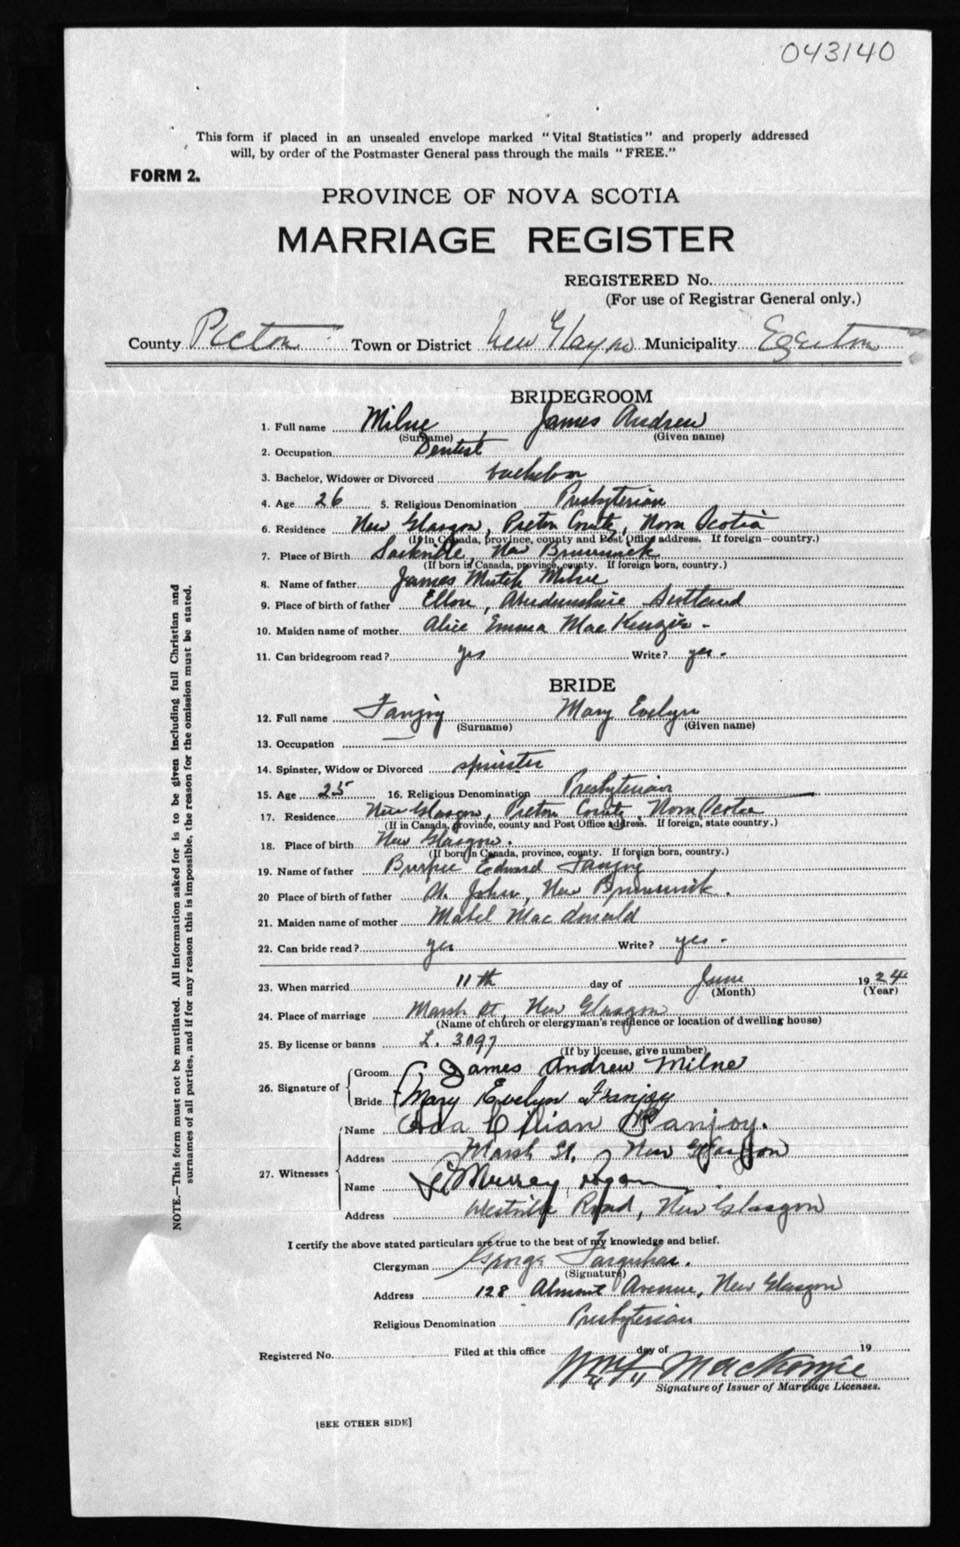 043140
This form if placed in an unsealed envelope marked "Vital Statistics" and properly addressed
will, by order of the Postmaster General pass through the mails "FREE."
FORM 2.
PROVINCE OF NOVA SCOTIA
MARRIAGE REGISTER
REGISTERED No.
(For use of Registrar General only.)
County Pictou Town or District New Glasgow Municipality Egerton
BRIDEGROOM
1. Full name Milne James Andrew
(Surname) (Given name)
2. Occupation Dentist
3. Bachelor, Widower or Divorced bachelor
4. Age 26 5. Religious Denomination Presbyterian
6. Residence New Glasgow, Pictou County, Nova Scotia
(If in Canada, province, county and Post Office address. If foreign—country.)
7. Place of Birth Sackville, New Brunswick
(If born in Canada, province, county. If foreign born, country.)
8. Name of father James Mutch Milne
9. Place of birth of father Ellon, Aberdeenshire Scotland
10. Maiden name of mother Alice Emma MacKenzie -
11. Can bridegroom read? yes Write? yes -
BRIDE
12. Full name Fanjoy Mary Evelyn
(Surname) (Given name)
13. Occupation
14. Spinster, Widow or Divorced spinster
15. Age 25 16. Religious Denomination Presbyterian
17. Residence New Glasgow, Pictou County, Nova Scotia
(If in Canada, province, county and Post Office address. If foreign, state country.)
18. Place of birth New Glasgow.
(If born in Canada, province, county. If foreign born, country.)
19. Name of father Burpee Edward Fanjoy
20 Place of birth of father St. John, New Brunswick.
21. Maiden name of mother Mabel MacDonald
22. Can bride read? yes Write? yes -
23. When married 11th day of June 1924
(Month) (Year)
24. Place of marriage Marsh St, New Glasgow
(Name of church or clergyman's residence or location of dwelling house)
25. By license or banns L. 3097
(If by license, give number)
26. Signature of Groom James Andrew Milne
Bride Mary Evelyn Fanjoy
27. Witnesses Name Ada Lilian Fanjoy.
Address Marsh St, New Glasgow
Name Murray
Address Westville Road, New Glasgow
I certify the above stated particulars are true to the best of my knowledge and belief.
Clergyman George Farquhar.
(Signature)
Address 128 Almont Avenue, New Glasgow
Religious Denomination Presbyterian
Registered No. Filed at this office day of 19
MacKenzie
Signature of Issuer of Marriage Licenses.
[SEE OTHER SIDE]
NOTE.—This form must not be mutilated. All information asked for is to be given including full Christian and
surnames of all parties, and if for any reason this is impossible, the reason for the omission must be stated.